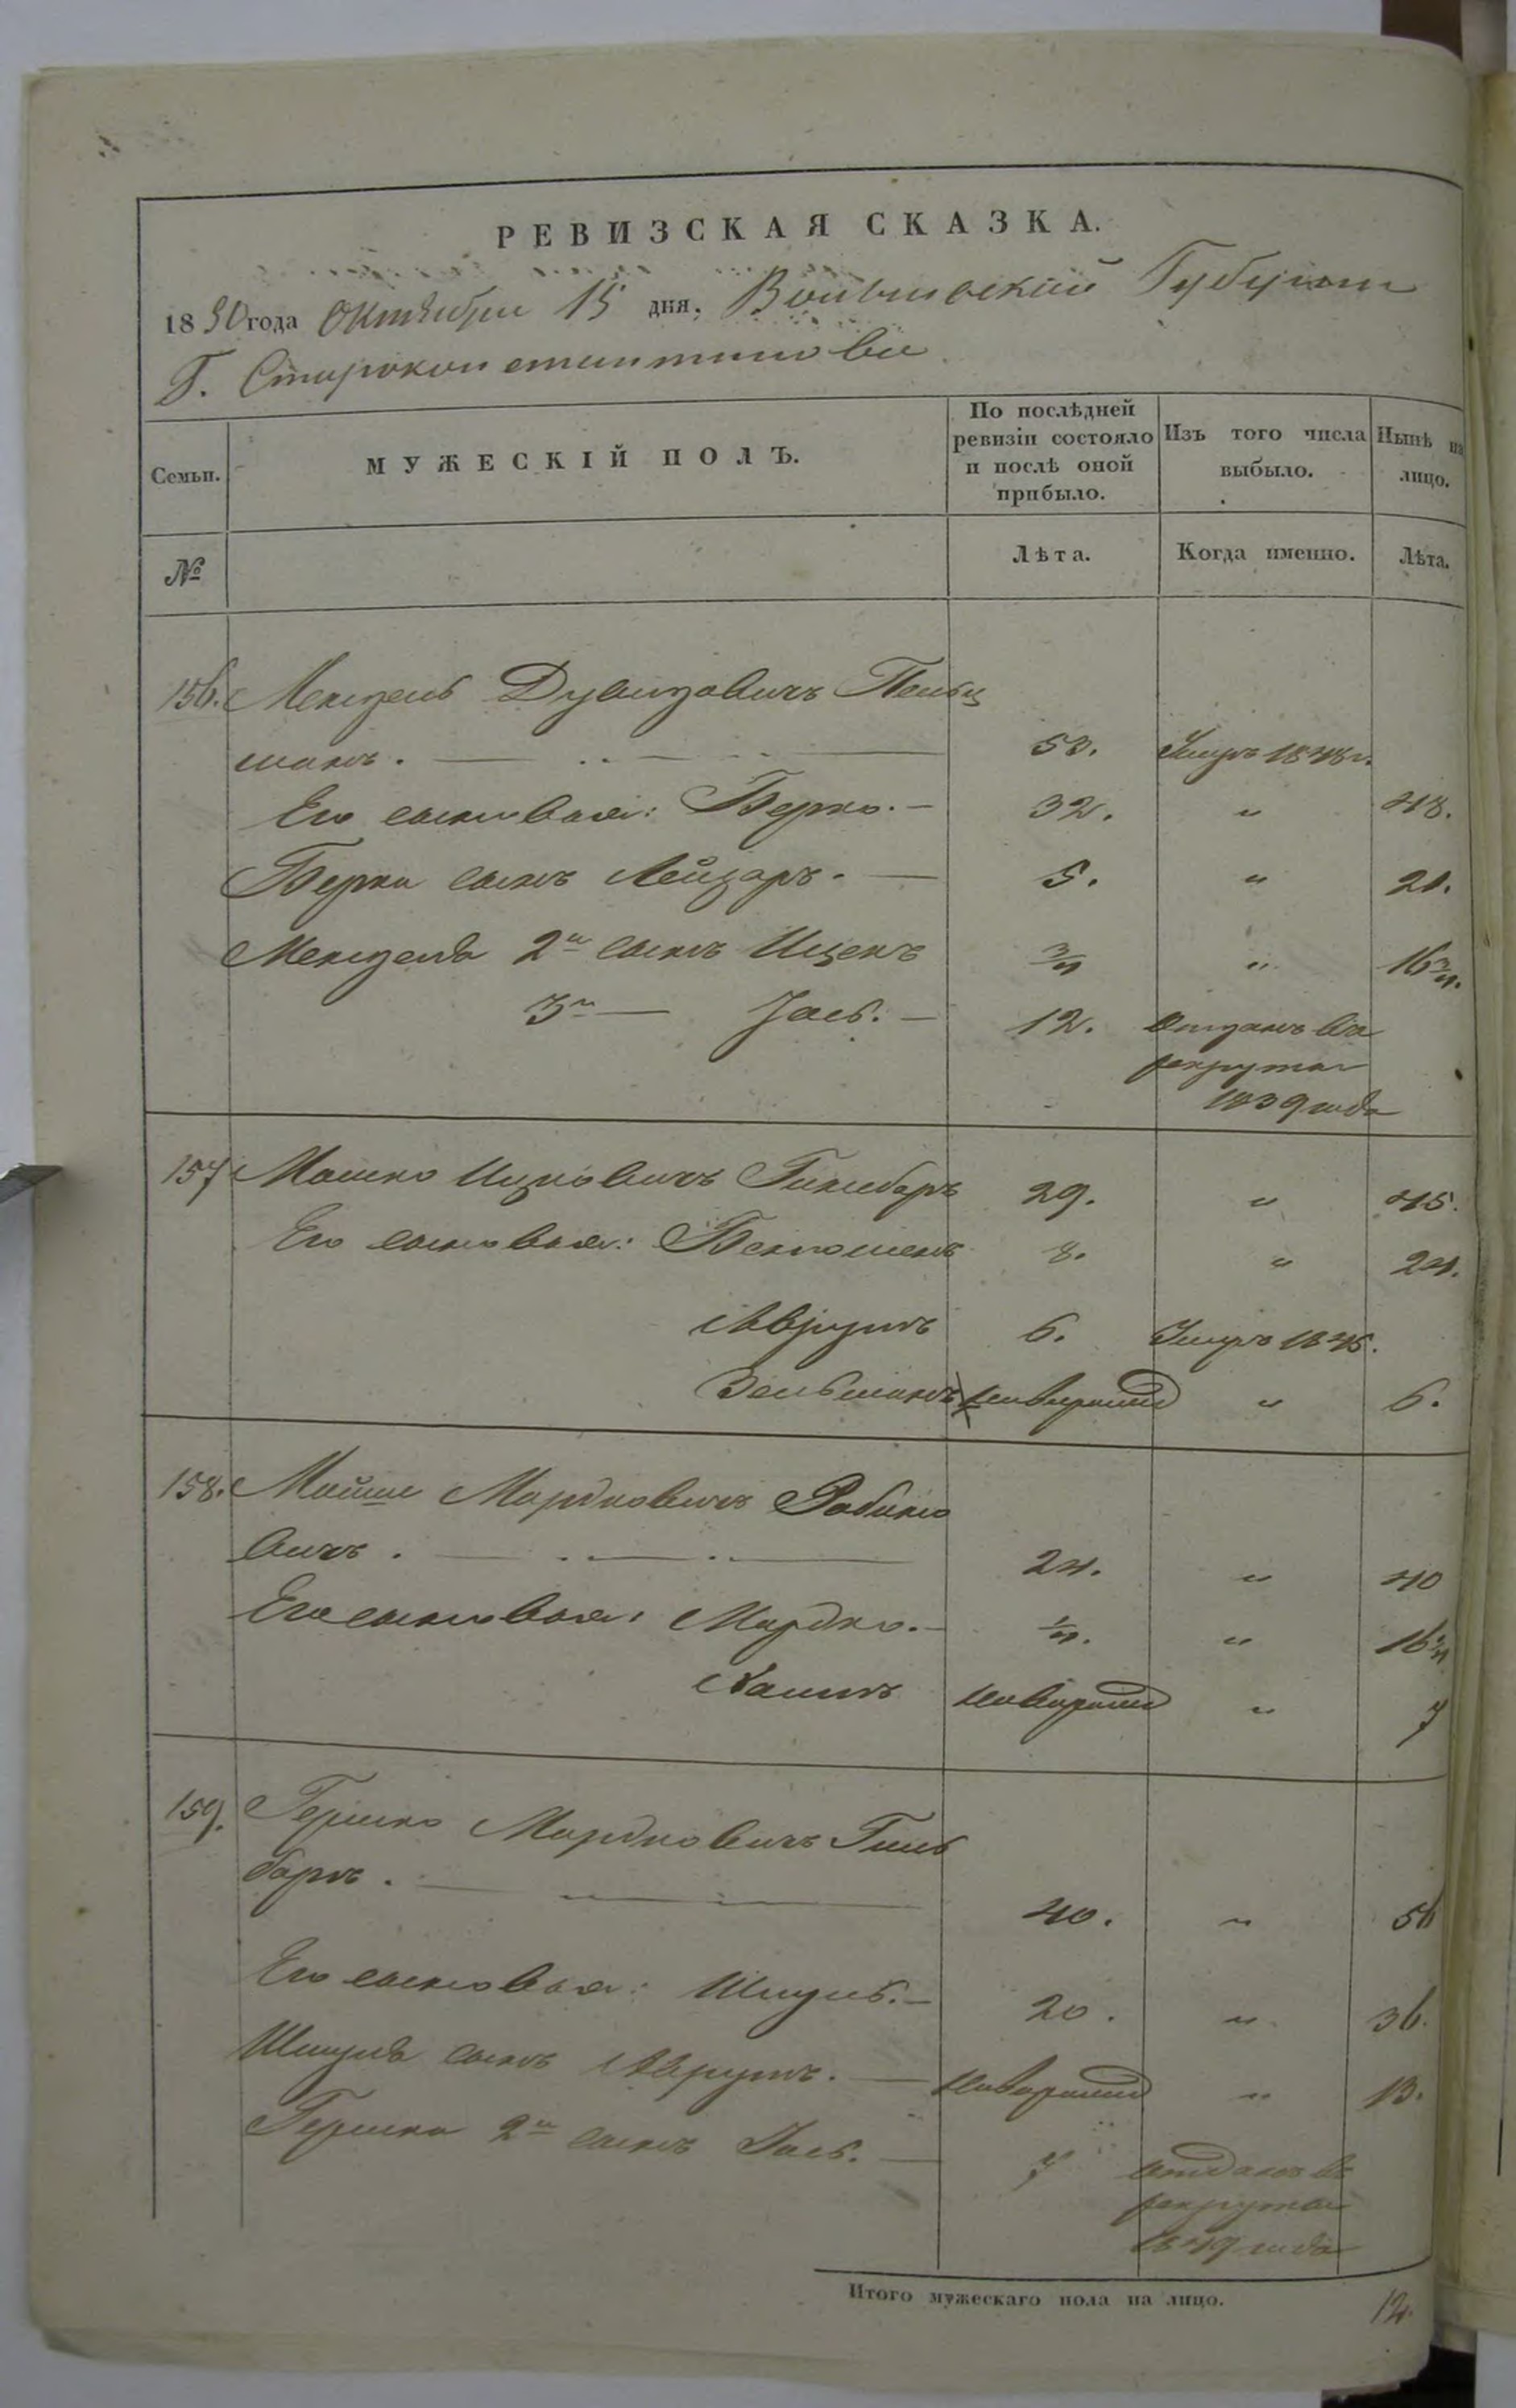 РЕВИЗСКАЯ СКАЗКА.
1850 года Октября 15 дня, Волынской Губернии
Г. Староконстантинова
Семьи.
МУЖЕСКІЙ ПОЛЪ.
По послѣдней ревизіи состояло и послѣ оной прибыло.
Изъ того числа выбыло.
Нынѣ на лицо.
№
Лѣта.
Когда именно.
Лѣта.
156. Мендель Дувидовичъ Пельц
манъ. 53. Умеръ 1848 г.
Его сыновья: Берко. 32. " 48.
Берка сынъ Лейзаръ. 5. " 21.
Менделя 2й сынъ Ицекъ 3/4 " 16 3/4.
3й — Іось. 12. Отданъ въ
рекруты
1839 года
157 Мошко Ицковичъ Гинсбаръ 29. " 45.
Его сыновья: 8. " 24.
Аврумъ 6. Умеръ 1846.
Зельманъ новорожд " 6.
158. Мойше Мордковичъ Рабино
вичъ. 24. " 40
Его сыновья: Мордко. 1/4. " 16 1/4
Хаимъ новорожд " 7
159. Гершко Мордковичъ Гиль
баръ. 40. " 56
Его сыновья: Шмуль. 20. " 36.
Шмуля сынъ Аврумъ. новорожд " 13.
Гершка 2й сынъ Іось. 7 отданъ въ
рекруты
1849 года
Итого мужескаго пола на лицо. 12.